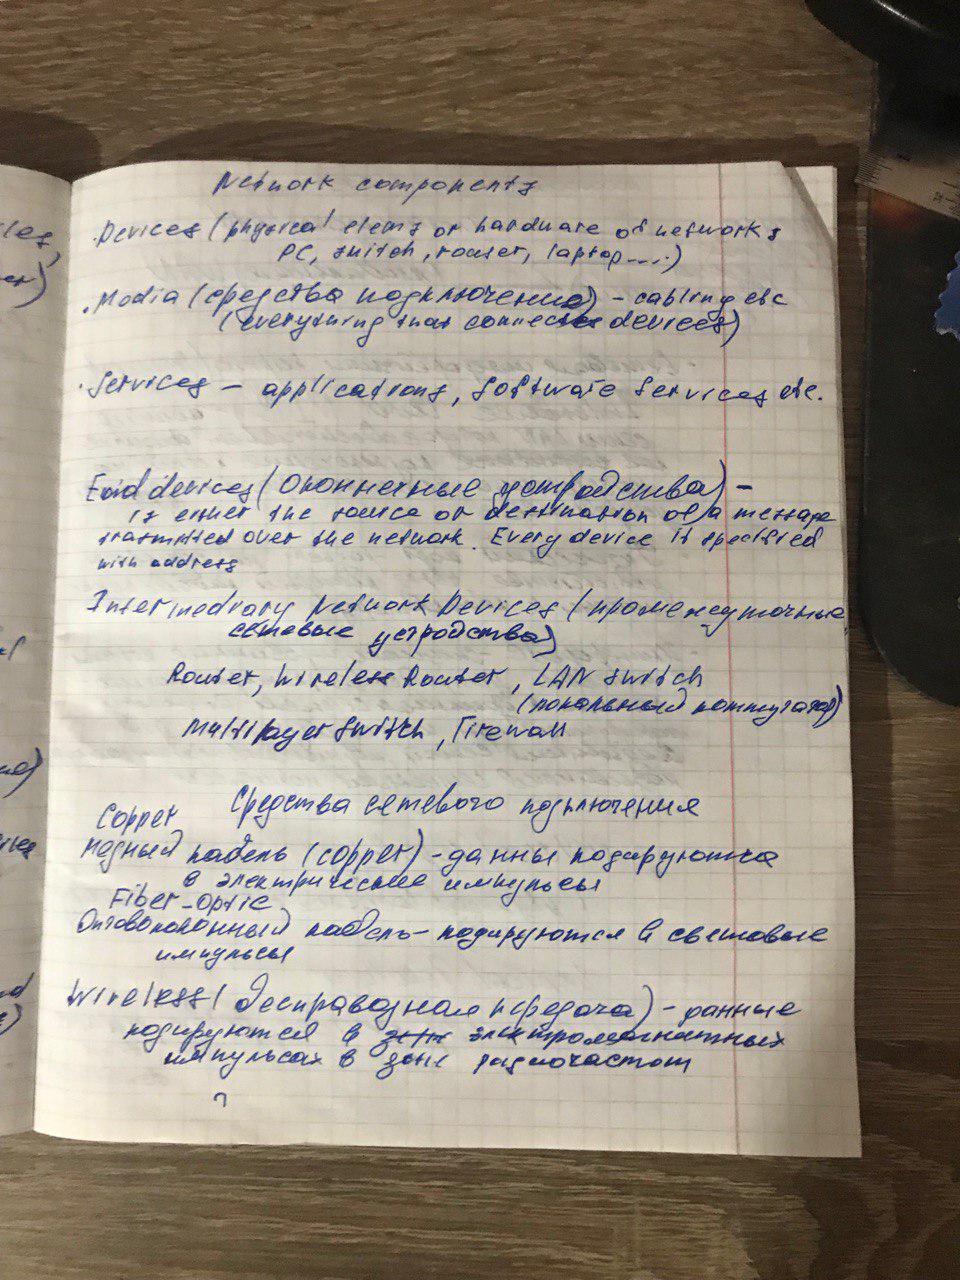 Network components
· Devices (physical elems or hardware of networks
PC, switch, router, laptop ....)
· Media (средства подключения) - cabling etc
(everything that connects devices)
· Services - applications, Software Services etc.
End devices (Оконнечные устройства) -
is either the source or destination of a message
transmitted over the network. Every device is specified
with address
Intermediary Network Devices (промежуточные
сетевые устройства)
Router, Wireless Router, LAN switch
(локальный коммутатор)
Multilayer Switch, Firewall
Средства сетевого подключения
Copper
медный кабель (copper) - данны кодируются
в электрические импульсы
Fiber-optic
Оптоволоконный кабель - кодируются в световые
импульсы
Wireless (беспроводная передача) - данные
кодируются в электромагнитных
импульсах в зоне радиочастот